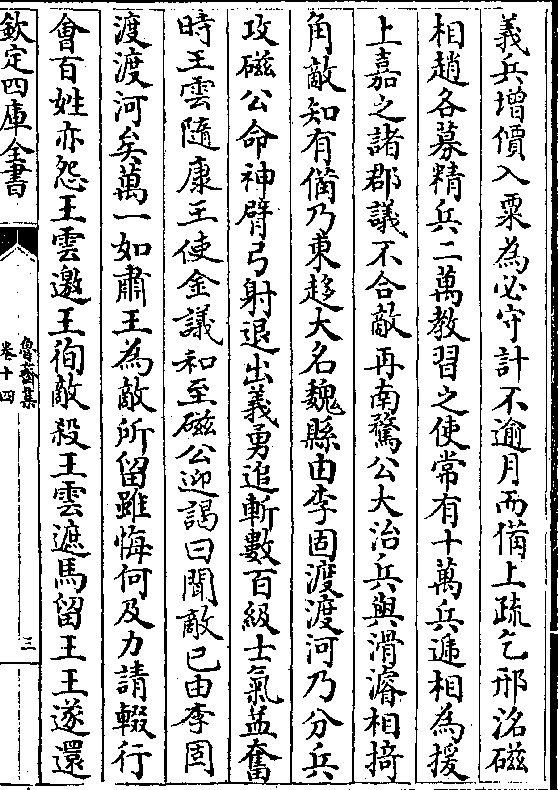 義兵增價入粟為必守計不逾月而備上疏乞邢洺磁
相趙各募精兵二萬教習之使常有十萬兵遞相為援
上嘉之諸郡議不合敵再南騖公大治兵與滑濬相掎
角敵知有備乃東趍大名魏縣由李固渡渡河乃分兵
攻磁公命神臂弓射退出義勇追斬數百級士氣益奮
時王雲隨康王使金議和至磁公迎謁曰聞敵已由李固
渡渡河矣萬一如肅王為敵所留雖悔何及力請輟行
會百姓亦怨王雲邀王徇敵殺王雲遮馬留王王遂還
欽定四庫全書
魯齋集
卷十四
三